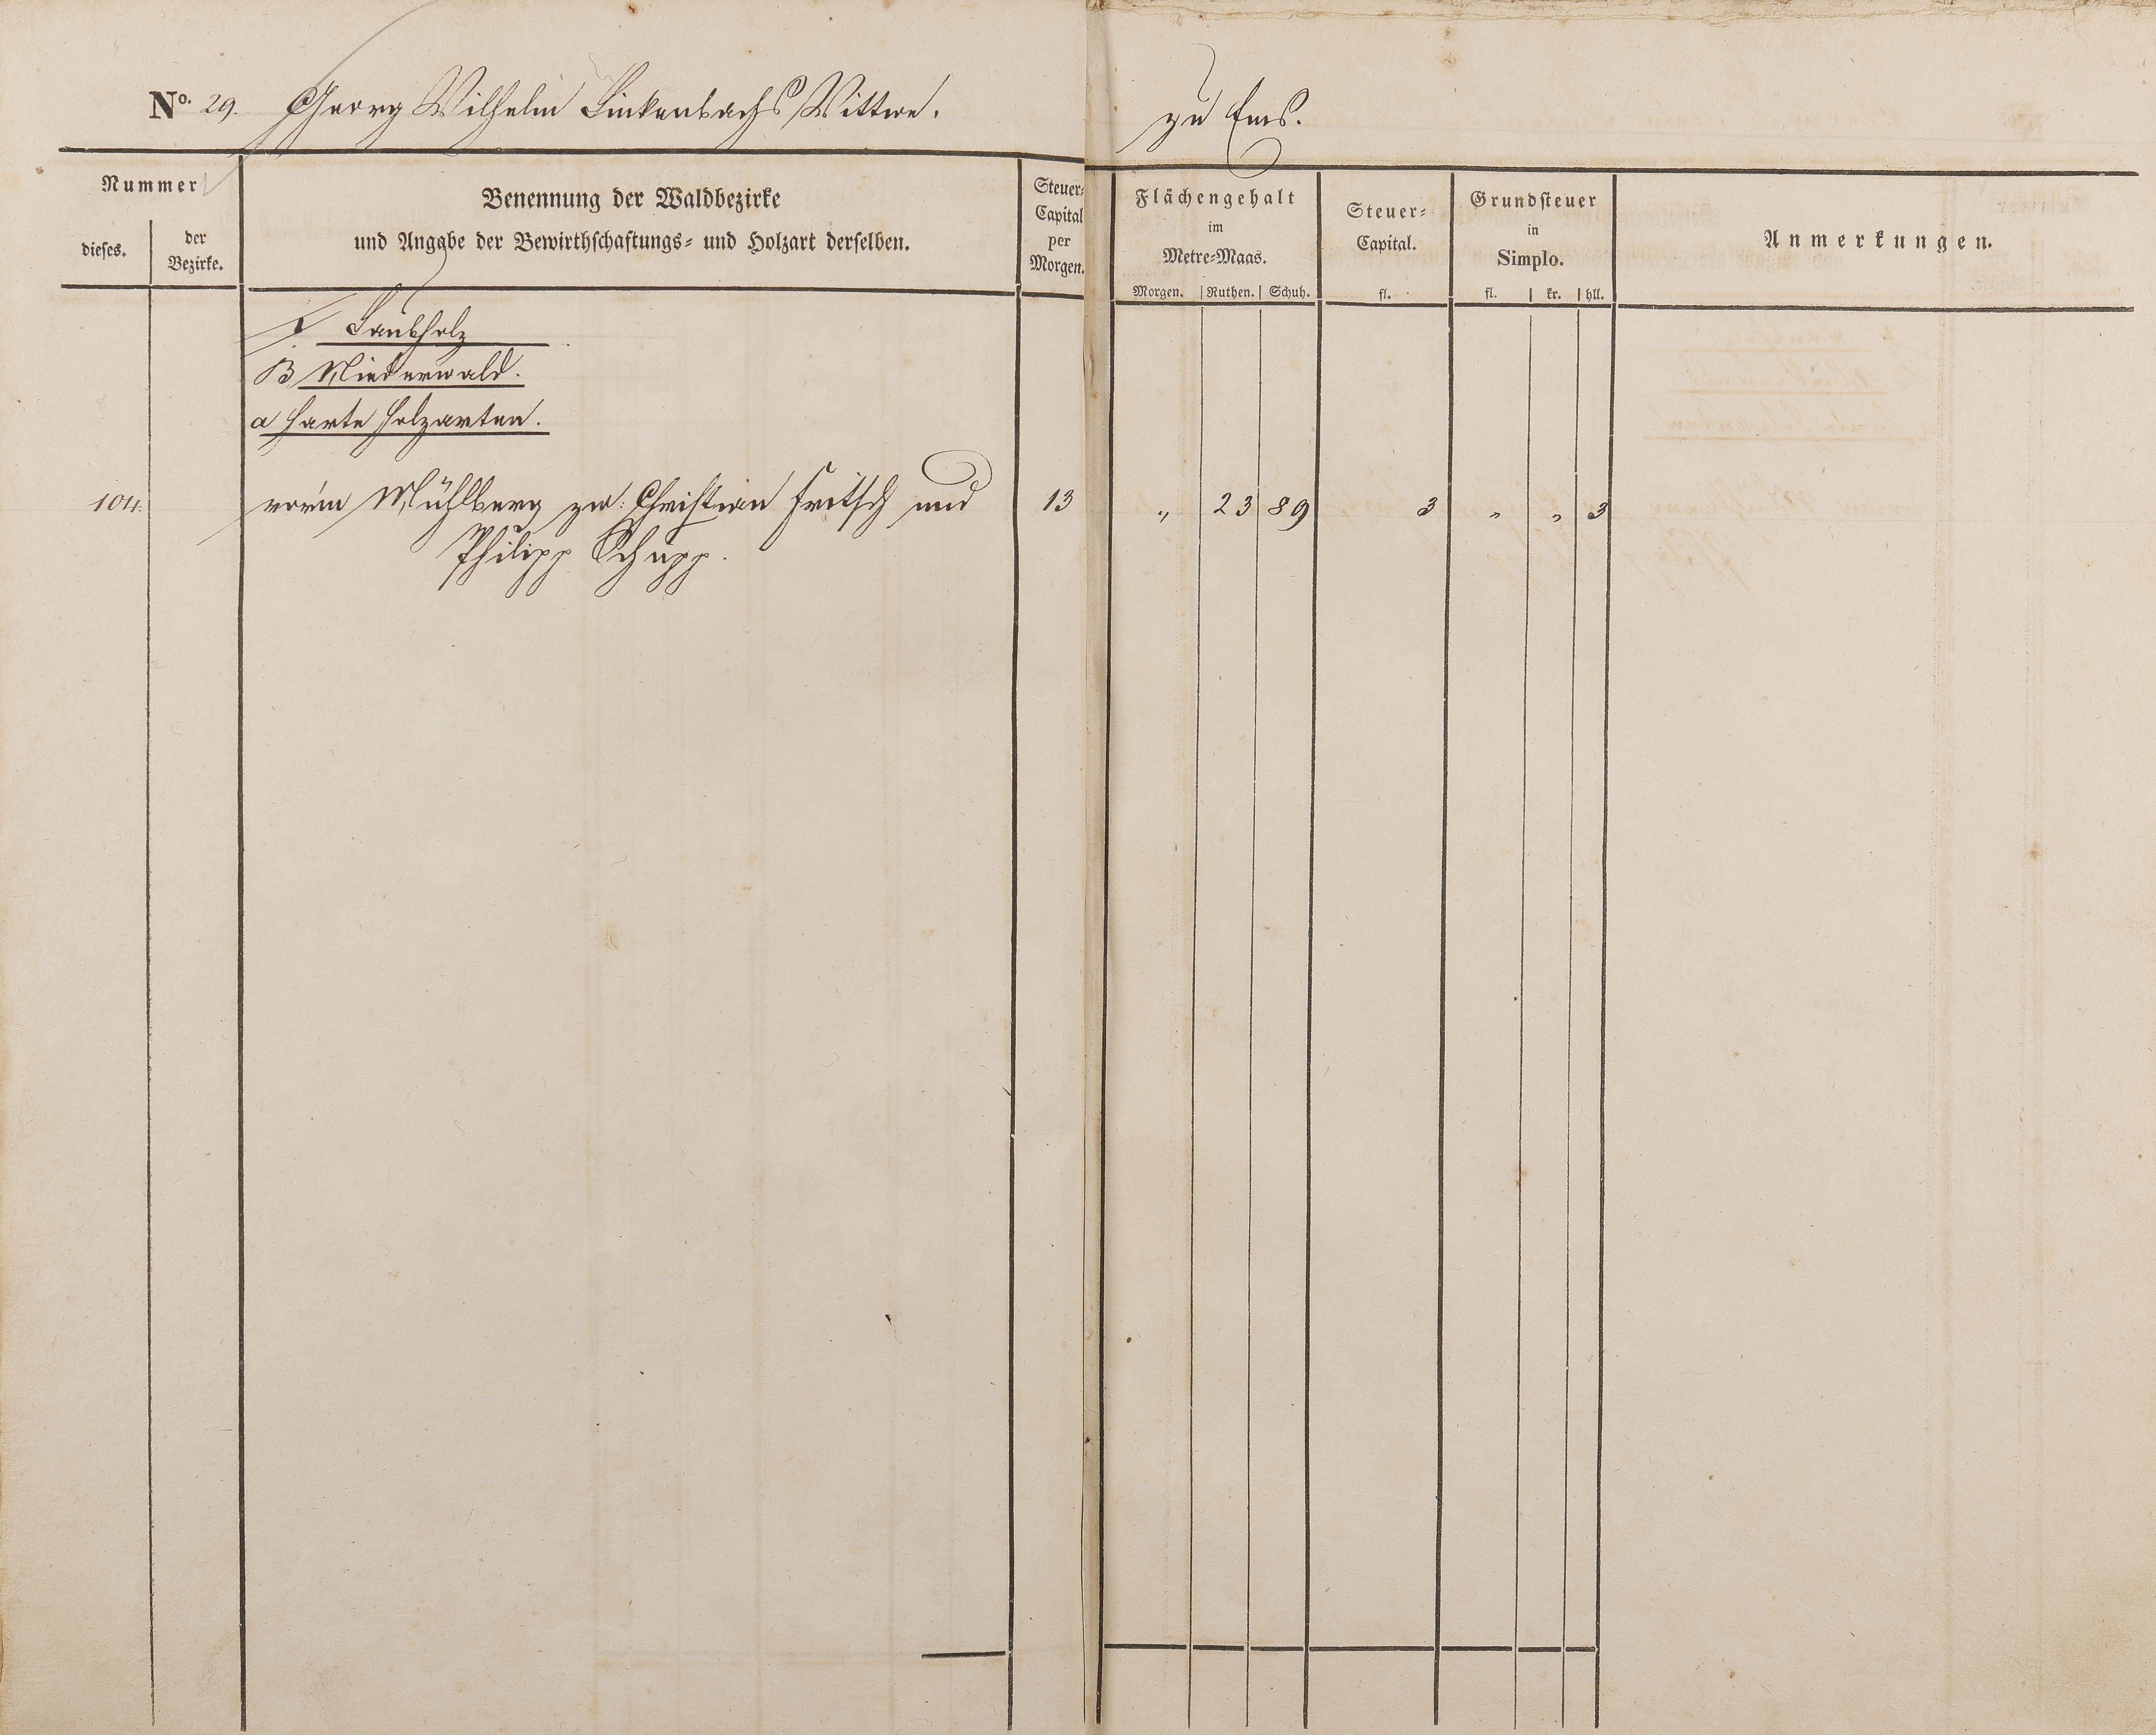 No. 29. Georg Wilhelm Linkenbachs Wittwe. zu Ems.
Nummer
dieses.
der Bezirke.
Benennung der Waldbezirke
und Angabe der Bewirthschaftungs- und Holzart derselben.
Steuer-
Capital
per
Morgen.
Flächengehalt
im
Metre-Maas.
Morgen. Ruthen. Schuh.
Steuer-
Capital.
fl.
Grundsteuer
in
Simplo.
fl. kr. hll.
Anmerkungen.
I Laubholz
B Niederwald.
a harte Holzarten.
104. vorm Mühlberg zw: Christian Fritsch und 13 „ 23 89 3 „ „ 3
Philipp Schupp.